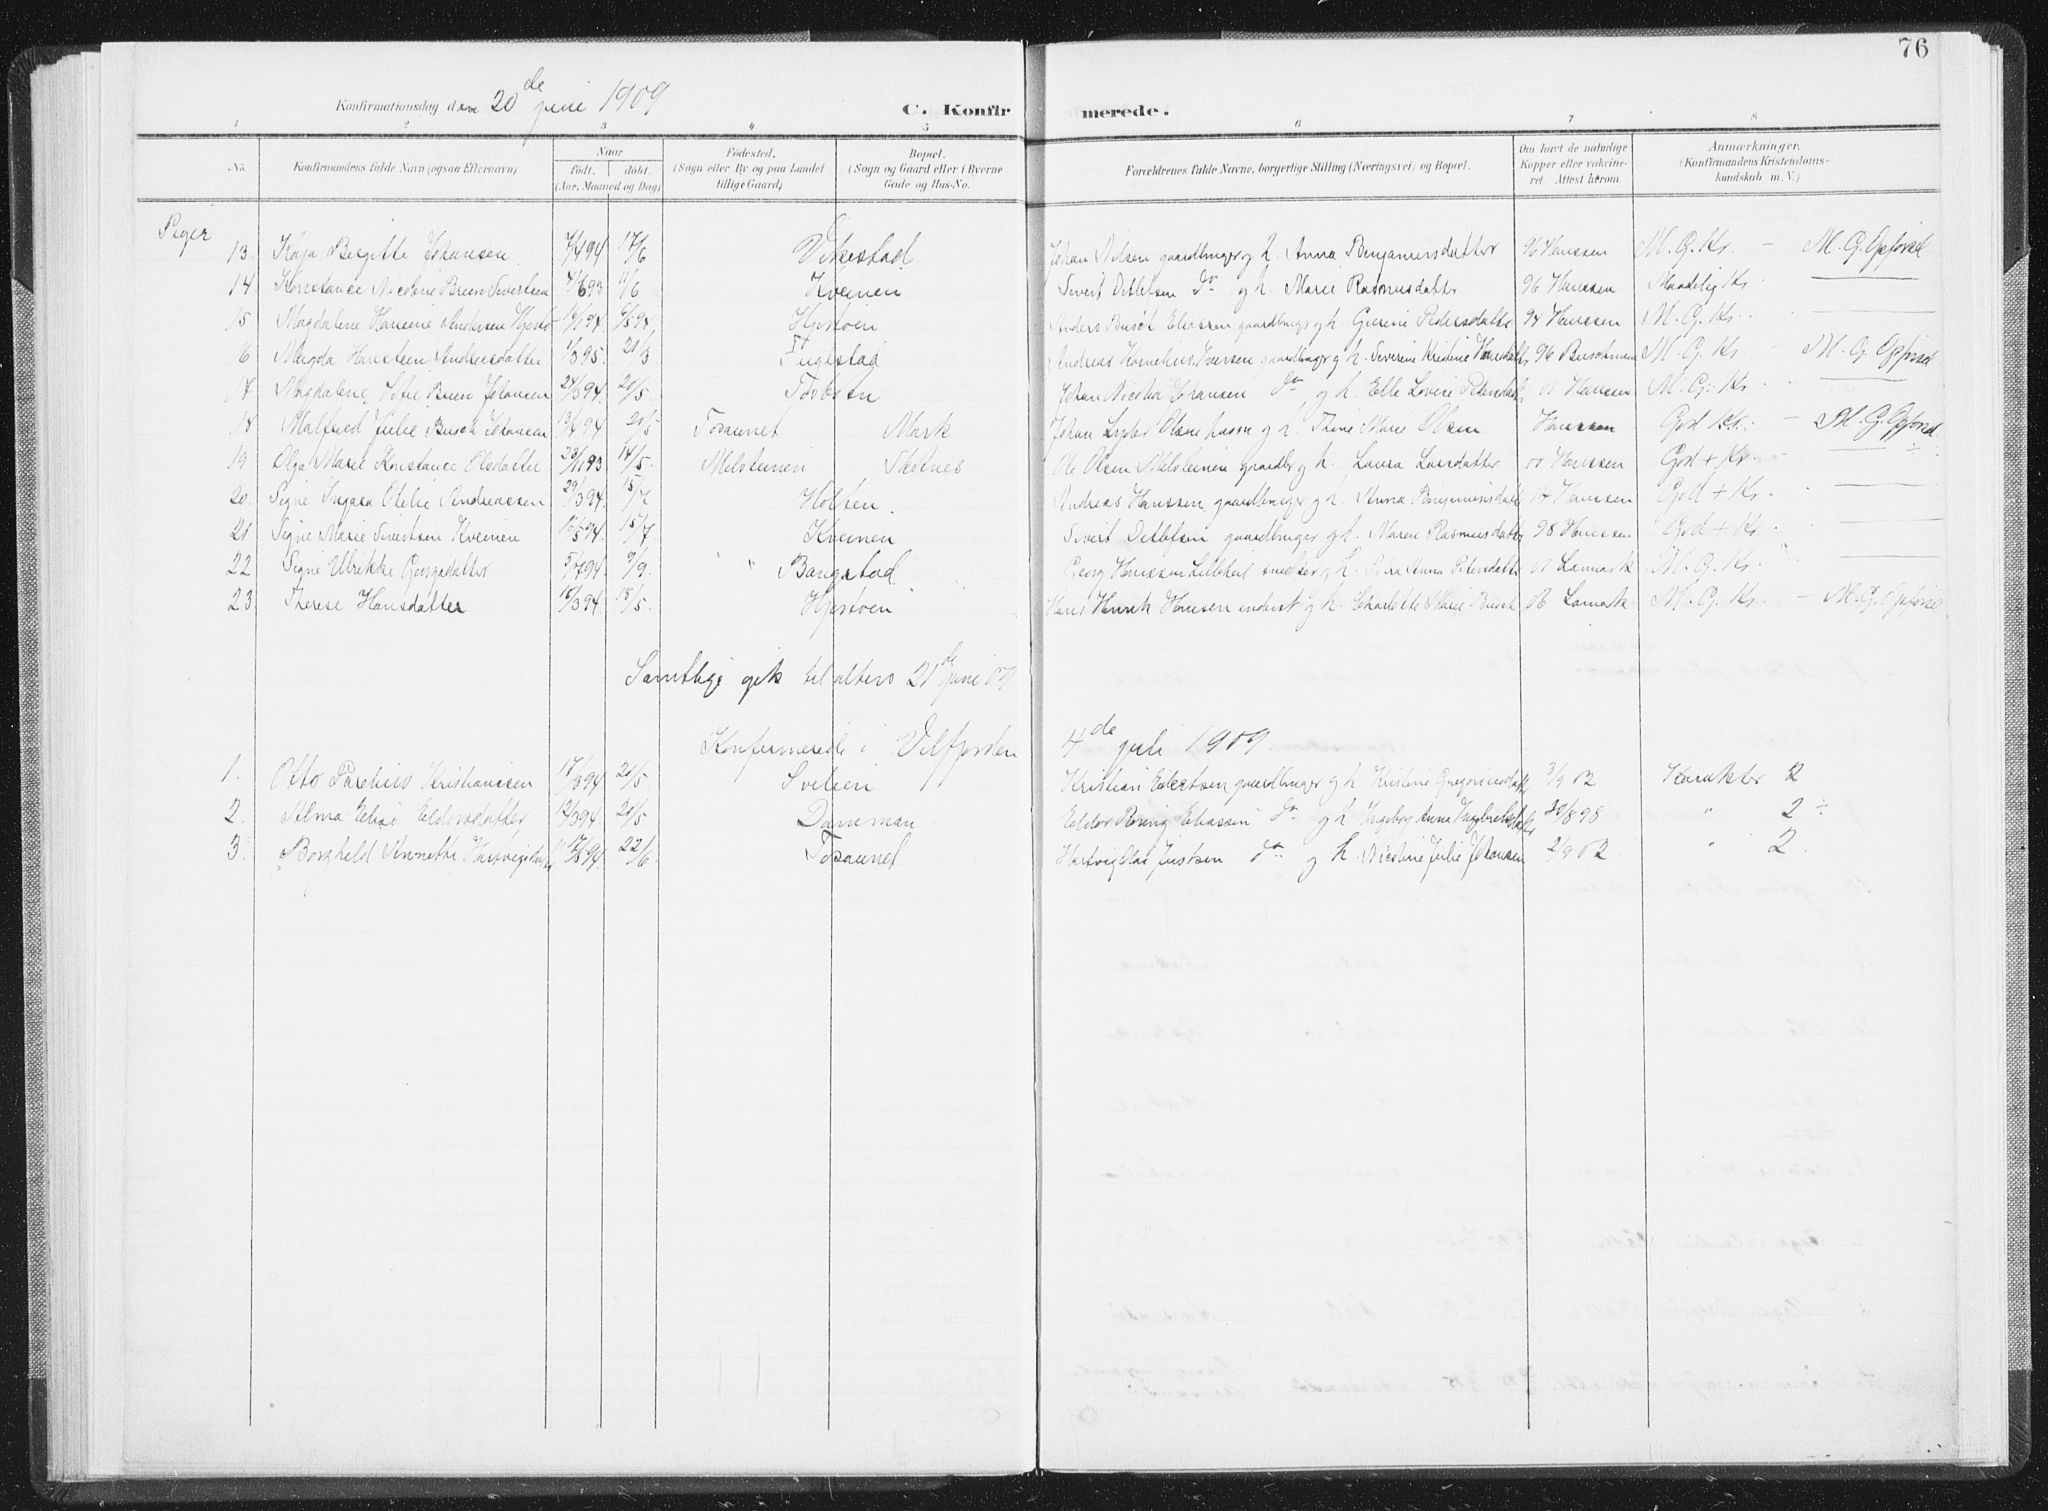 76
Konfirmationsdag den 20de juni 1909
C. Konfirmerede.
1 2 3 4 5 6 7 8
No. Konfirmandens fulde Navn (ogsaa Efternavn) Naar født. døbt. (Aar, Maaned og Dag) Fødested. (Sogn eller By og paa Landet tillige Gaard) Bopæl. (Sogn og Gaard eller i Byerne Gade og Hus-No. Forældrenes fulde Navne, borgerlige Stilling (Næringsvei) og Bopæl. Om havt de naturlige Kopper eller vaccineret. Attest herom. Anmærkninger. (Konfirmandens Kristendomskundskab m. V.)
Piger
13. Kaja Birgitte Johansen 7/4 94 17/6 Vikestad Johan Nilsen gaardbruger og h. Anna Benjaminsdatter 96 Hanssen M. G. Kr. – M. G. Opførsel
14. Konstance Nicoline Breen Sivertsen 93 11/6 Kveinen Sivert Detlefsen do og h. Marie Rasmusdatter 96 Hanssen Maadelig Kr.
15 Magdalene Hansine Andersen Hjortø 94 94 Hjortøen Anders Busch Eliassen gaardbruger og h. Gurine Pedersdatter 94 Hanssen M. G. Kr.
16 Magda Hansteen Andersdatter 1/3 95 21/3 Fuglstad Andreas Kornelius Iversen gaardbruger og h. Severine Kristine Hansdatter 96 Buschmann M. G. Kr. – M. G. Opførsel
17 Magdalene Sofie Breen Johansen 24/3 94 20/5. Tosbotn Johan Nicolai Johansen do og h. Elle Lovise Petersdatter 01 Hanssen M. G. Kr.
18 Malfred Julie Busch Johansen 13/4 94 20/5 Tosaunet Mark Johan Lyder Olsen husm. og h. Trine Marie Olsen Hanssen God Kr. – M. G. Opførsel
19 Olga Marie Konstance Olsdatter 23/11 93 14/5. Melsteinen Skotnes Ole Olsen Melsteinen gaardbr og h. Laura Larsdatter 01 Hanssen God + Kr.
20. Signe Ingara Otelie Andreassen 29/3 94. 15/7 Holten. Andreas Hanssen gaardbruger og h. Anna Benjaminsdatter Hanssen God + Kr.
21 Signe Marie Sivertsen Kveinen 16/5 94. 15/7 Kveinen Sivert Detlefsen gaardbruger og h. Maren Rasmusdatter 98 Hanssen God + Kr.
22 Signe Ulrikke Georgsdatter 5/7 94. 9/9. " Bangstad Georg Hanssen Lilleheil snedker og h. Petra Anna Petersdatter 01 Lamark M. G. Kr.
23. Therese Hansdatter 18/3 94 15/5. Hjortøen Hans Henrik Hansen inderst og h. Charlotte Marie Busch 06 Lamark M. G. Kr. – M. G. Opførsel
Samtlige gik til alters 21de juni 09
Konfirmerede i Velfjorden 4de juli 1909.
1. Otto Parelius Kristianssen 17/3 94 20/5. Svelien Kristian Edvartsen gaardbruger og h. Kristine Gregoriusdatter 3/9 02 Karakter 2
2. Alma Elise Eldorsdatter 12/3 94. 20/5. Danmon Eldor Rønig Eliassen do og h. Ingeborg Anna Ingebriktsdatter 20/8 98 " 2 ÷
3. Borghild Annette Hartvigsdatter 17/5 94. 22/6. Tosaunet Hartvig Olai Justsen do og h. Nicoline Julie Johansen 2/9 02. " 2.